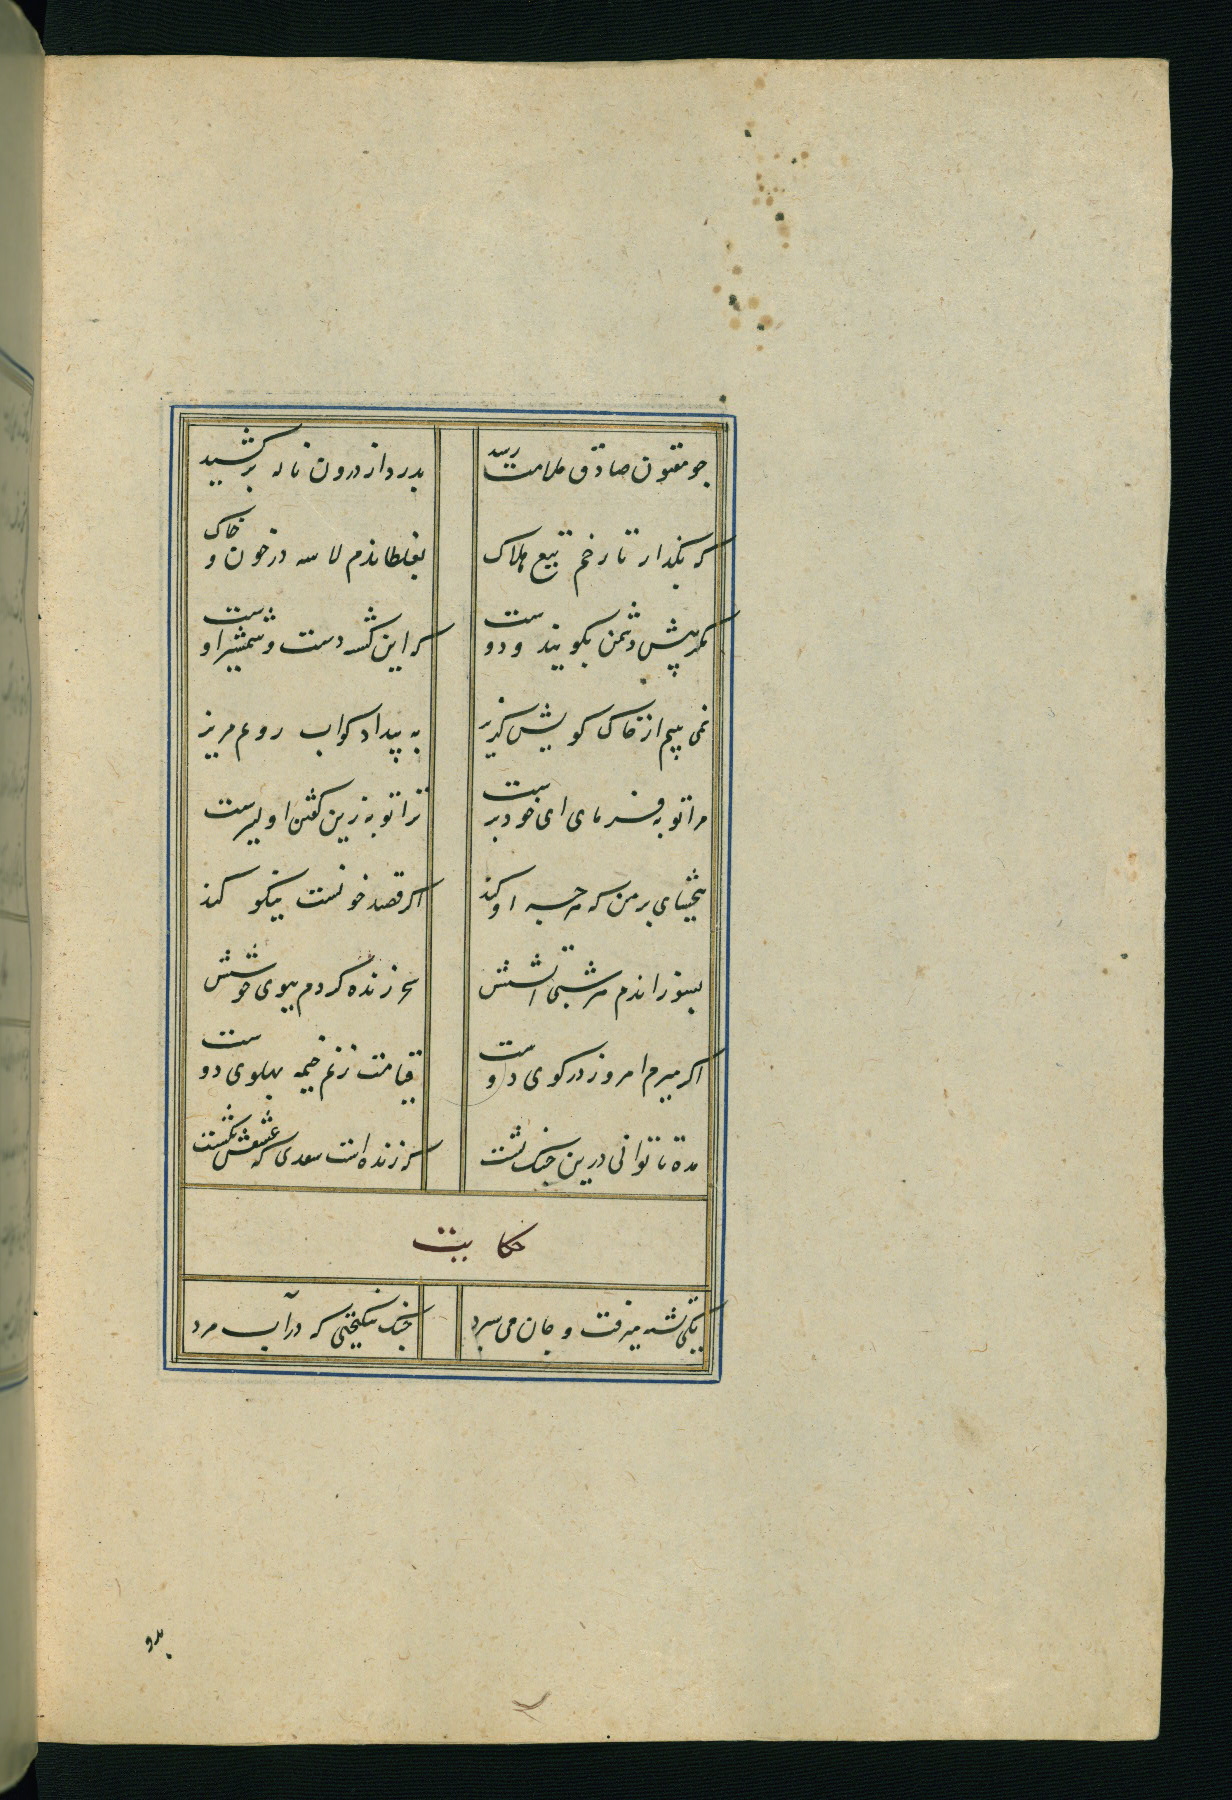 چو مفتون صادق ملامت رسید بدرد از درون ناله برکشید
که بگذار تا زخم تیغ هلاک بغلطاندم لاشه در خون و خاک
مگر پیش دشمن بگویند و دوست که این کشته دست و شمشیر اوست
نمی بینم از خاک کویش گریز به بیداد گو آب رویم مریز
مرا توبه فرمای ای خودپرست ترا توبه زین گفتن اولیترست
ببخشای بر من که هرچه او کند اگر قصد خونست نیکو کند
بسوزاندم هر شبی آتشش سحر زنده گردم ببوی خوشش
اگر میرم امروز در کوی دوست قیامت زنم خیمه پهلوی دوست
مده تا توانی درین جنگ پشت که زنده است سعدی که عشقش بکشت
حکایت
یکی تشنه میرفت و جان می سپرد خنک نیکبختی که در آب مرد
بدو